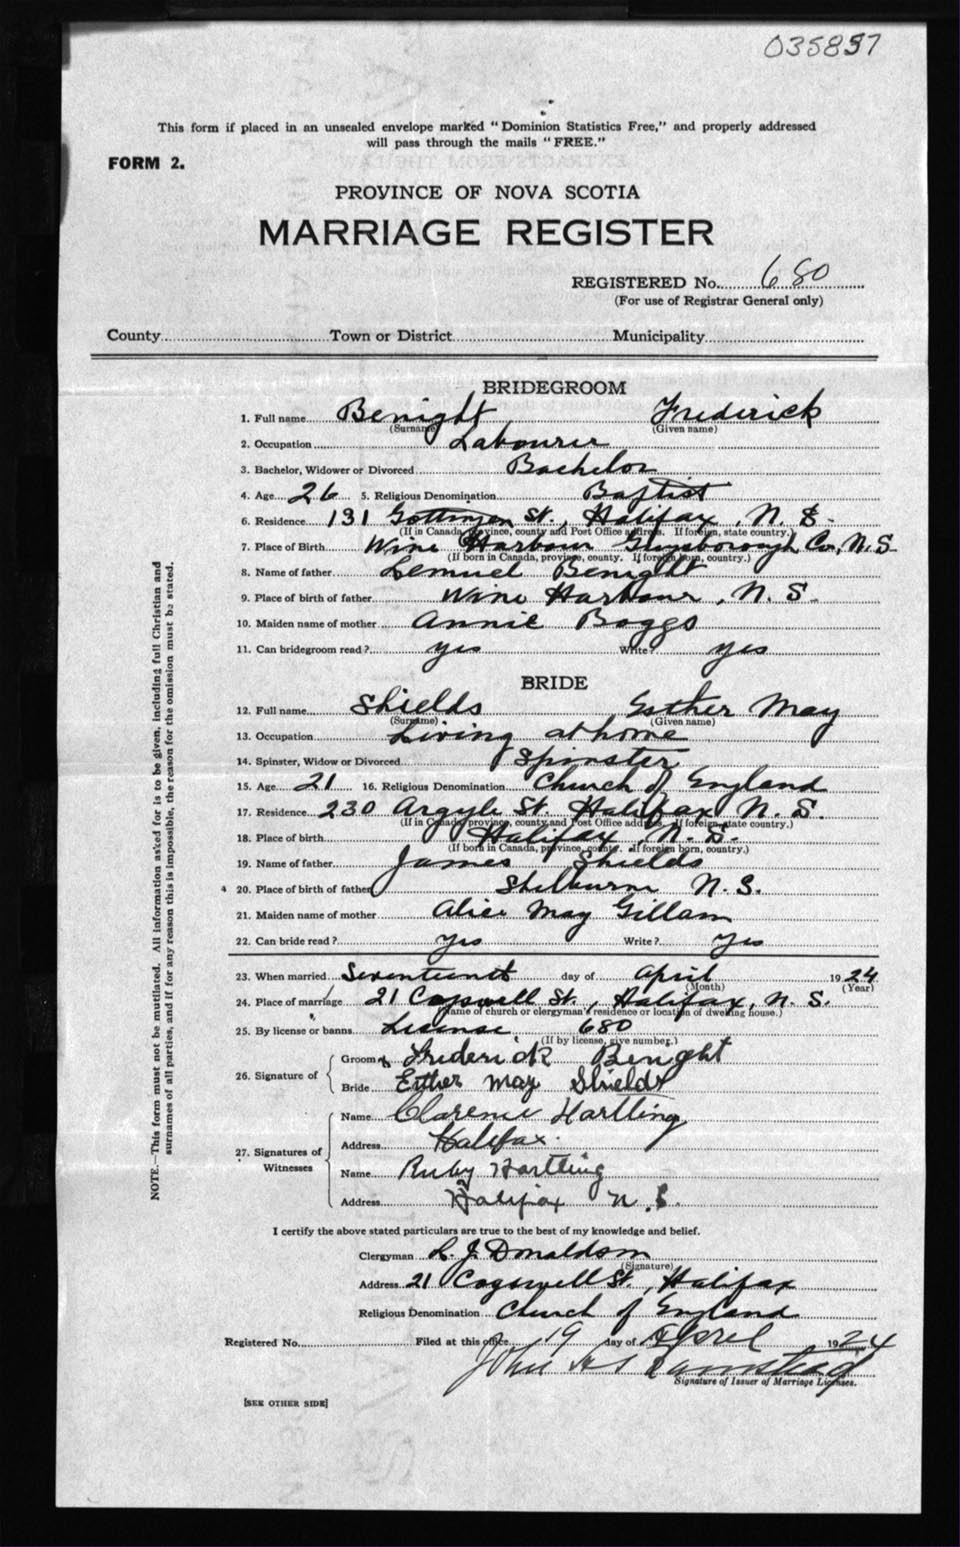 035837
This form if placed in an unsealed envelope marked "Dominion Statistics Free," and properly addressed
will pass through the mails "FREE."
FORM 2.
PROVINCE OF NOVA SCOTIA
MARRIAGE REGISTER
REGISTERED No. 680
(For use of Registrar General only)
County Town or District Municipality
BRIDEGROOM
1. Full name Benight Frederick
(Surname) (Given name)
2. Occupation Labourer
3. Bachelor, Widower or Divorced Bachelor
4. Age 26 5. Religious Denomination Baptist
6. Residence 131 Gottingen St., Halifax, N.S.
(If in Canada, province, county and Post Office address. If foreign, state country.)
7. Place of Birth Wine Harbour Guysborough Co, N.S.
(If born in Canada, province, county. If foreign born, country.)
8. Name of father Lemuel Benight
9. Place of birth of father Wine Harbour, N.S.
10. Maiden name of mother Annie Boggs
11. Can bridegroom read? yes Write? yes
BRIDE
12. Full name Shields Esther May
(Surname) (Given name)
13. Occupation Living at home
14. Spinster, Widow or Divorced Spinster
15. Age 21 16. Religious Denomination Church of England
17. Residence 230 Argyle St. Halifax N.S.
(If in Canada, province, county and Post Office address. If foreign, state country.)
18. Place of birth Halifax, N.S.
(If born in Canada, province, county. If foreign born, country.)
19. Name of father James Shields
20. Place of birth of father Shelburne N.S.
21. Maiden name of mother Alice May Gillam
22. Can bride read? Yes Write? Yes
23. When married Seventeenth day of April 1924
(Month) (Year)
24. Place of marriage 21 Cogswell St., Halifax, N.S.
(Name of church or clergyman's residence or location of dwelling house.)
25. By license or banns License 680
(If by license, give number.)
26. Signature of
Groom Frederick Benight
Bride Esther May Shields
27. Signatures of Witnesses
Name Clarence Hartling
Address Halifax.
Name Ruby Hartling
Address Halifax N.S.
I certify the above stated particulars are true to the best of my knowledge and belief.
Clergyman L. J. Donaldson
(Signature)
Address 21 Cogswell St., Halifax
Religious Denomination Church of England
Registered No. Filed at this office 19 day of April 1924
John
Signature of Issuer of Marriage Licenses.
[SEE OTHER SIDE]
NOTE.—This form must not be mutilated. All information asked for is to be given, including full Christian and
surnames of all parties, and if for any reason this is impossible, the reason for the omission must be stated.